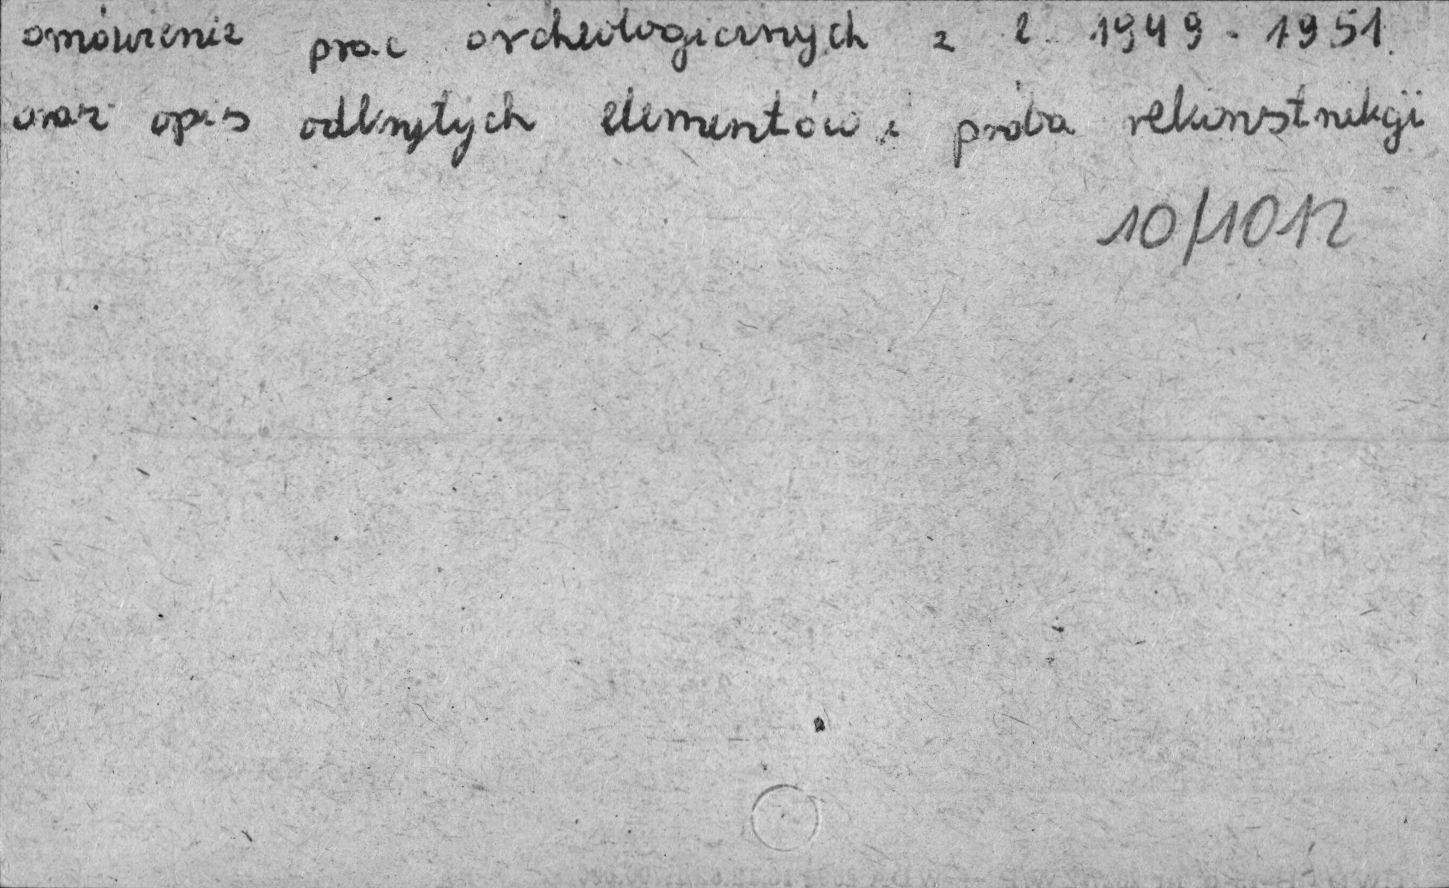 omówienie prac archeologicznych z l. 1949-1951.
oraz opis odkrytych elementów i próba rekonstrukcji
10/1012